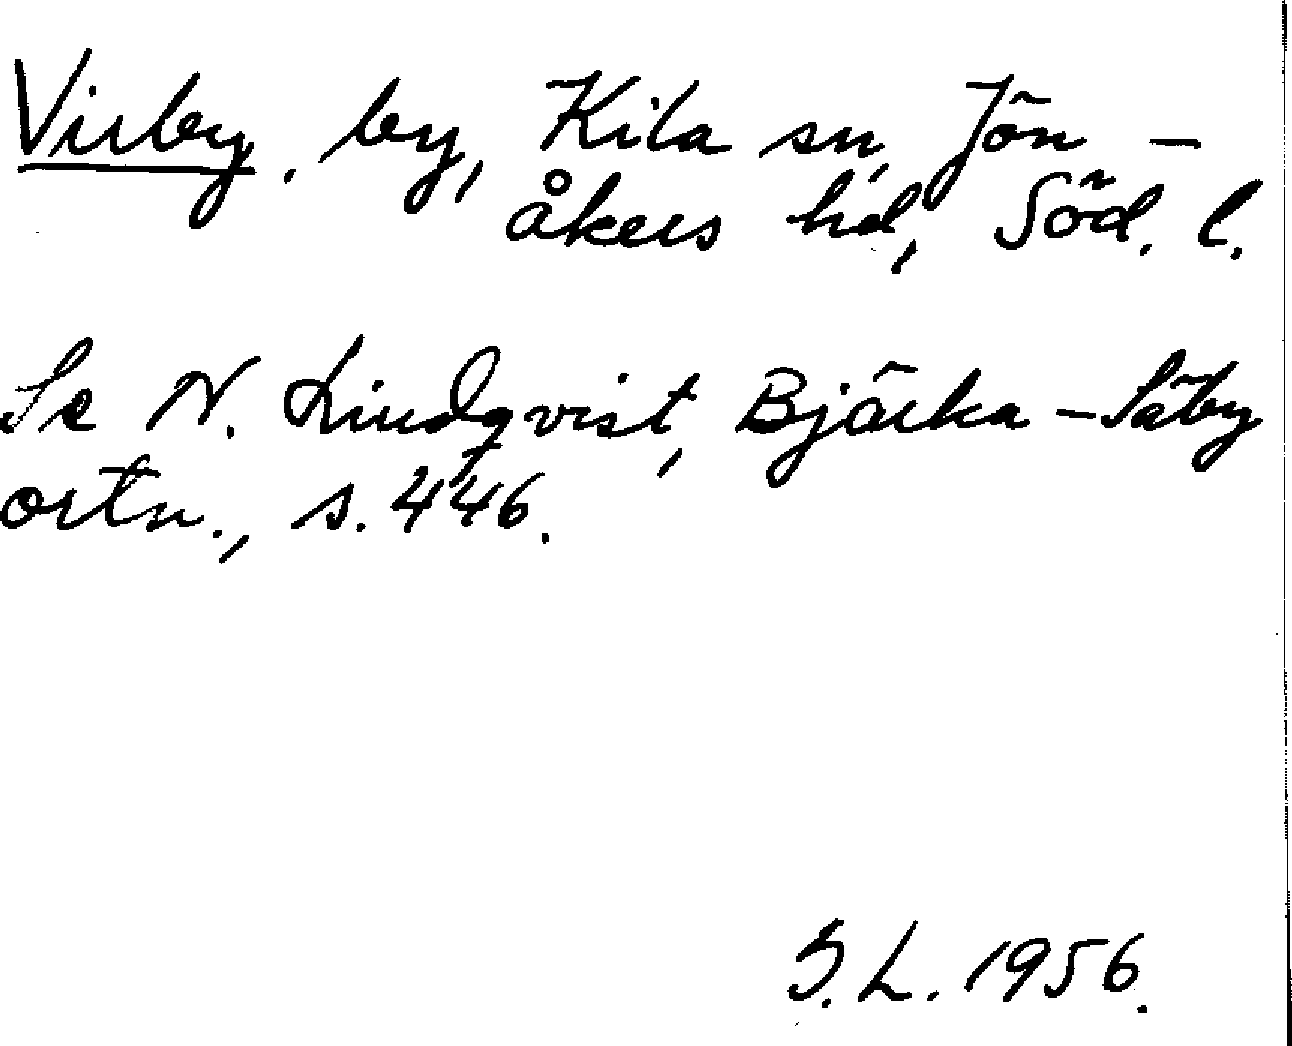 Virby, by, Kila sn, Jön-
åkers hd, Söd. l.
Se N. Lindqvist, Bjärka-Säby
ortn., s. 446.
S. L. 1956.